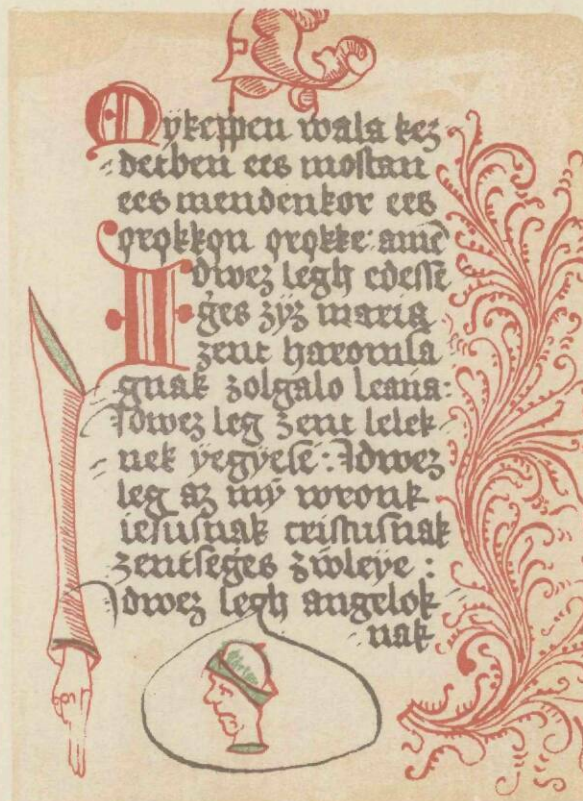 Mykeppen wala kez
detben ees mostan
ees mendenkor ees
ørøkkøn ørøkke: amē
Idwez legh edesse
ges zyz maria
zent haromsa
gnak zolgalo leaña:
Idwez leg zent lelek
nek ÿegÿese: Idwez
leg az mÿ wronk
iesusnak cristusnak
zentseges zwleÿe:
Idwez legh angelok
nak